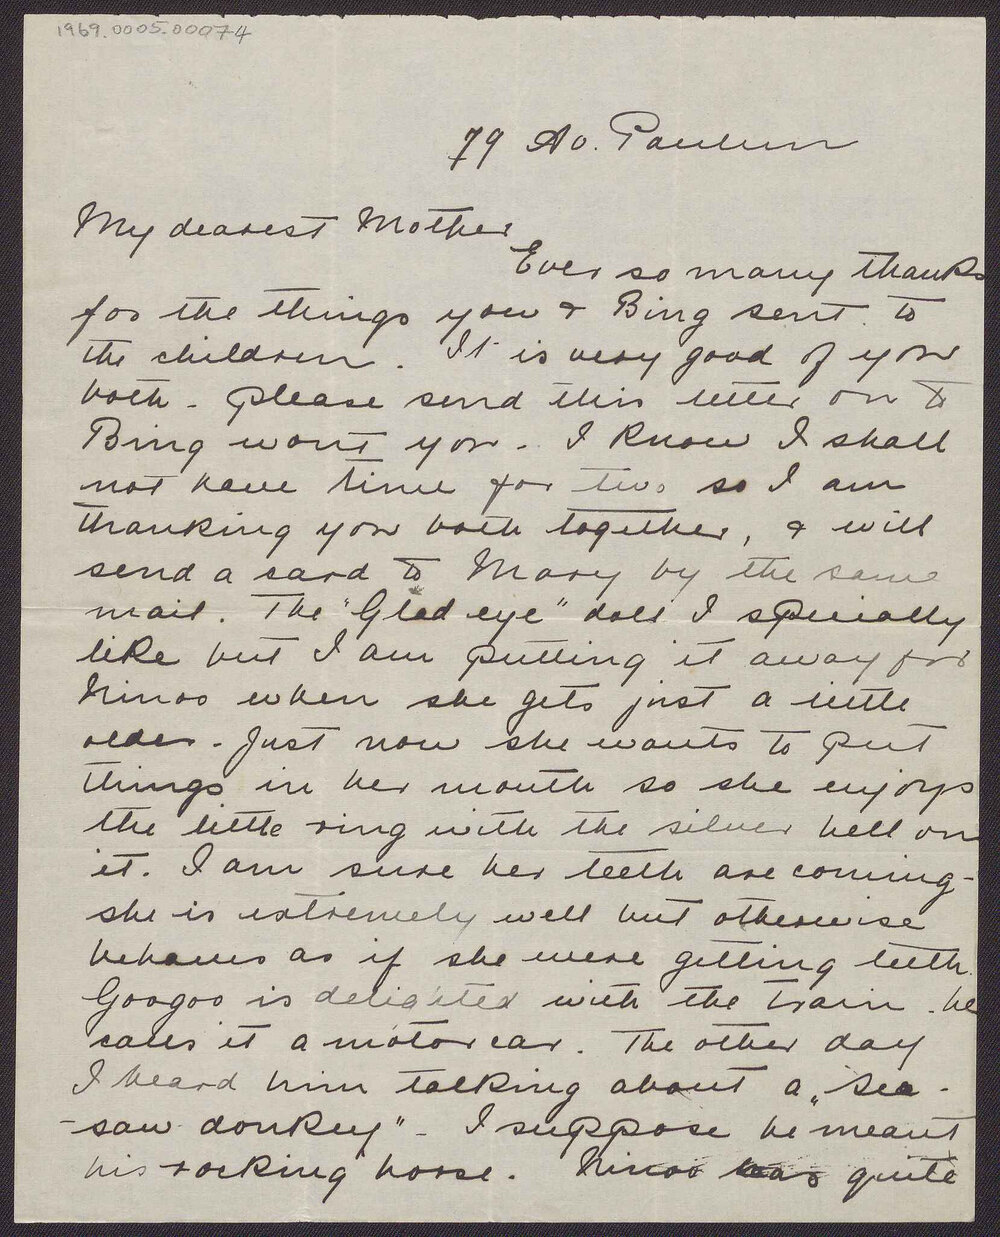 1969.0005.00074
79 Av. Paulum
My dearest Mother
Ever so many thanks
for the things you & Bing sent to
the children. It is very good of you
both - please send this letter on to
Bing wont you - I know I shall
not have time for two so I am
thanking you both together, & will
send a card to Mary by the same
mail. The "Glad eye" doll I specially
like but I am putting it away for
Ninoo when she gets just a little
older - Just now she wants to put
things in her mouth so she enjoys
the little ring with the silver bell on
it. I am sure her teeth are coming -
she is extremely well but otherwise
behaves as if she were getting teeth.
Googoo is delighted with the train - he
calls it a motor car. The other day
I heard him talking about a "sea -
- saw donkey" - I suppose he meant
his rocking horse. Ninoo was quite